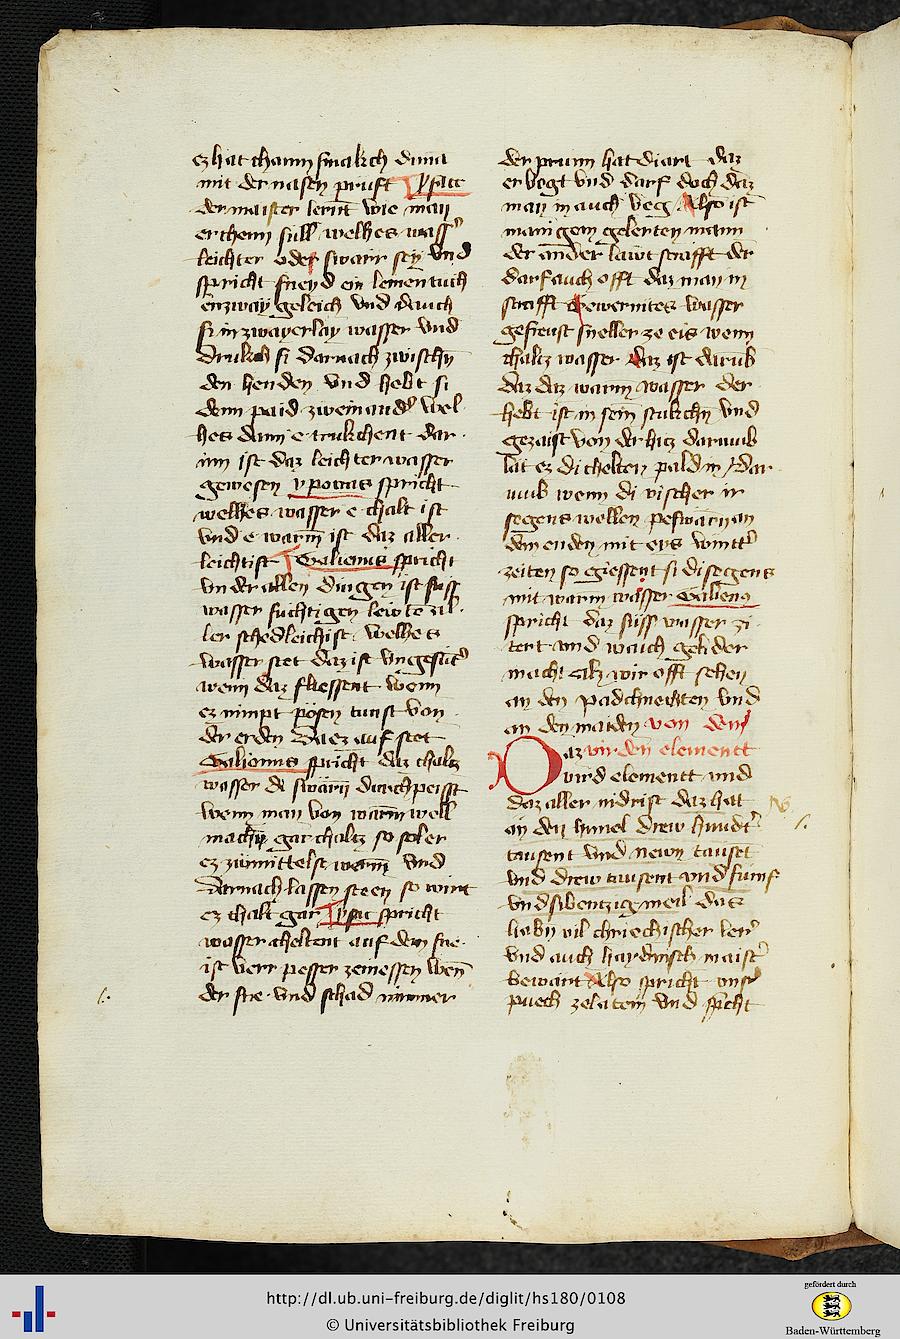 ez hat chainn smakch den man
mit der nasen prüft ysaac
der maister lernt wie man
erchenn sull welhes wasser
leichter oder swarr sey vnd
spricht sneyd ein leinen tuch
enzway geleich vnd dauch
si in zwayerlay wasser vnd
drukch si darnach zwischn
den henden vnd hebt si
denn paid zu einander wel-
hes dann e trukchent dar
inn ist daz leichter wasser
gewesen ypocras spricht
welhes wasser e chalt ist
vnd e warm ist daz aller
leichtist Galienus spricht
vnder allen dingen ist suss
wasser
ler schedleichist welhes
wasser stet daz ist vngesunt
wenn daz fliessent wenn
ez nimpt pösen tunst von
der erden da ez auf stet
Galienus spricht daz chaltz
wasser di swarn durchpeisst
wenn man von warm well
machn gar chaltz so sol er
ez zümittelst warm vnd
darnach lassen steen so wirt
ez chalt gar ysaac spricht
wasser cheltent auf dem sne
ist verr pesser ze niessen wen
der sne vnd schad nimmer
der prunn hat di art daz
er vogt vnd darf doch daz
man in auch veg Also ist
manigem gelerten mann
der ander läwt strafft der
darf auch offt daz man in
strafft Gewermtes wasser
gefreust sneller ze eis wenn
chaltz wasser daz ist darub
daz daz warm wasser der
hebt ist in sein stukchn vnd
gezaist von der hitz darumb
lät ez di chelten pald in dar
umb wenn di vischer ir
segens wellen peswärn an
den enden mit eys wintter
zeiten so giessent si di segens
mit warm wasser Galienus
spricht daz süss wasser zi-
tert vnd wauch gelider
macht alz wir offt sehen
an den padchnechten vnd
an den maiden von dem
az vird den elementt
vird elementt vnd
daz aller nidrist daz hat
an den himel drew hundt
tausent vnd newn tauset
vnd drew tausent vnd fümf
vnd sibentzig meil das
habn vil chriechischer lerer
vnd auch haydnisch maister
bewärt Also spricht vnser
puech ze latein vnd spricht
http://dl.ub.uni-freiburg.de/diglit/hs180/0108
© Universitätsbibliothek Freiburg
gefördert durch
Baden-Württemberg